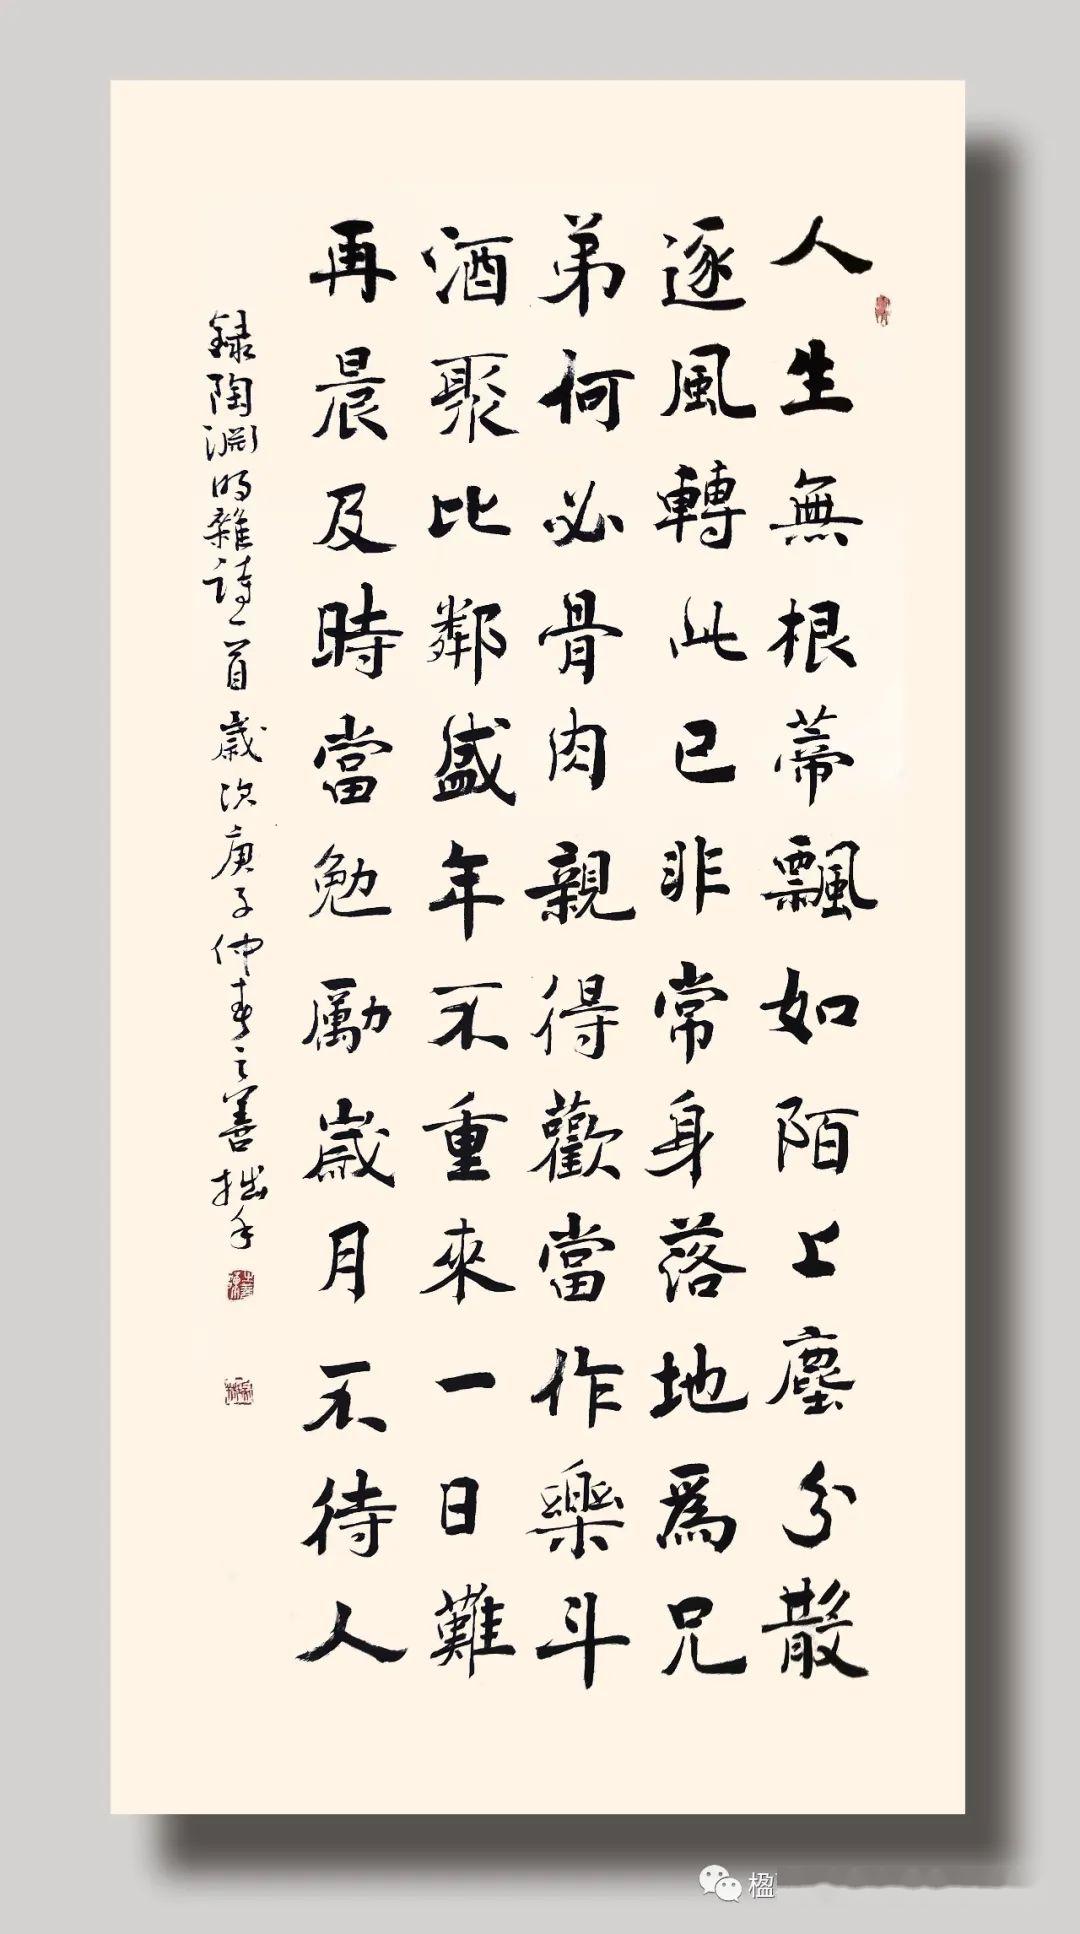 人生無根蒂飄如陌上塵分散
逐風轉此已非常身落地爲兄
弟何必骨肉親得歡當作樂斗
酒聚比鄰盛年不重來一日難
再晨及時當勉勵歲月不待人
録陶淵明雜詩一首歲次庚子仲春之善拙手
楹